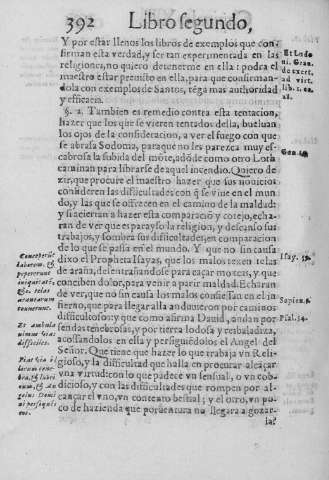 392 Libro segundo,
Y por estar llenos los libros de exemplos que con-
firman esta verdad, y ser tan experimentada en las
religiones, no quiero detenerme en ella: podra el
maestro estar preuisto en ella, para que confirman-
dola con exemplos de Santos, tẽga mas authoridad
y efficacia.
§. 2. Tambien es remedio contra esta tentacion,
hazer que los que se vieren tentados della, bueluan
los ojos de la consideracion, a ver el fuego con que
se abrasa Sodoma, paraque no les parezca muy es-
cabrosa la subida del mõte, adõde como otro Loth
caminan para librarse de aquel incendio. Quiero de-
zir, que procure el maestro hazer que sus nouicios
consideren las difficultades con q̃ se viue en el mun-
do, y las que se offrecen en el camino de la maldad:
y si acierran a hazer esta comparació y cotejo, echa-
ran de ver que es parayso la religion, y descanso sus
trabajos, y sombra sus dificultades, en comparacion
de lo que se passa en el mundo. Y que no sin causa
dixo el Propheta Isayas, que los malos texen telas
de araña, desentrañandose para caçar moscas, y que
conciben dolor, para venir a parir maldad. Echaran
de ver, que no sin causa los malos confiessan en el in-
fierno, que para llegar alla anduuieron por caminos
difficultosos: y que como afirma Dauid, andan por
sendas tenebrosas, y por tierra lodosa y resbaladiza,
acossandolos en ella y persiguiẽdolos el Angel del
Señor. Que tiene que hazer lo que trabaja vn Reli-
gioso, y la difficultad que halla en procurar alcaçar
vna virtud: con lo que padece vn sensual, o vn cob-
dicioso, y con las difficultades que rompen por al-
cançar el vno, vn contento bestial; y el otro, vn pu-
co de hazienda que por ventura no llegara a gozar-
la?
Et Ludo
ui. Gran.
de exert.
ad virt.
lib. 1. ca.
28.
Gen. 19.
Isay. 59.
Sapien. 5.
Psal. 34.
Conceperũt
laborem, &
pepererunt
iniquitatẽ,
&. telas
aranearum
texuerunt.
Et ambula
uimus vias
difficiles.
Fiat via il
larum tene-
bræ, & lubri
cum, & An
gelus Domi
ni persequẽs
eos.